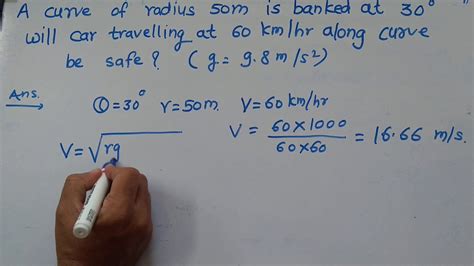 A curve of radius 50m is banked at 30°
will car travelling at 60 km/hr along curve
be safe? (g = 9.8 m/s²)
Ans.
θ=30° r=50m. V=60km/hr
V = 60×1000 / 60×60 = 16.66 m/s.
V=√rg